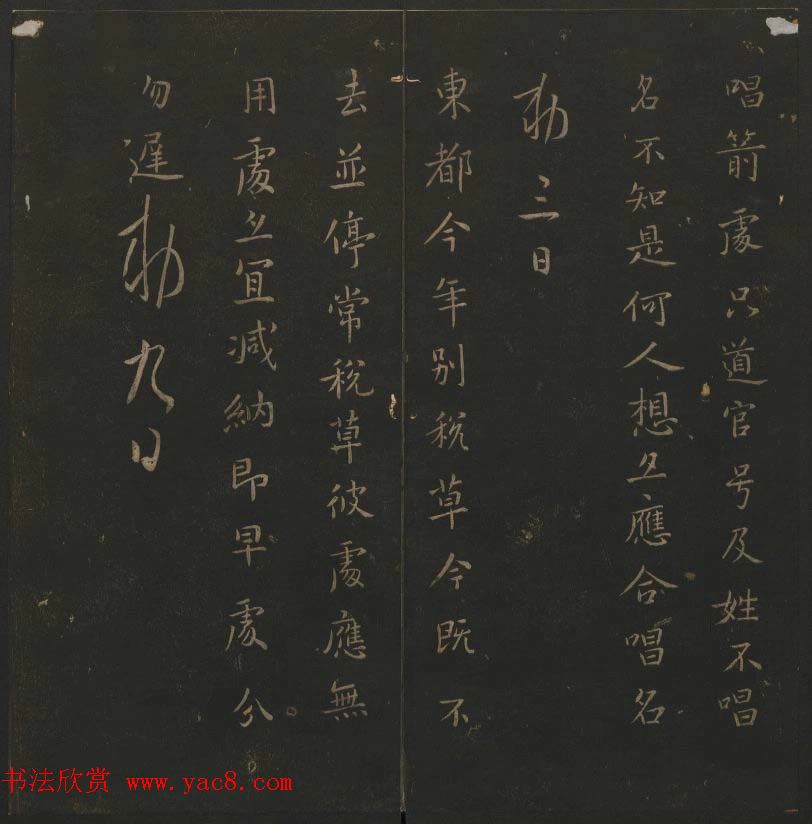 唱箭處只道官号及姓不唱
名不知是何人想必應合唱名
敕三日
東都今年别稅草今既不
去並停常稅草彼處應無
用處必宜减納即早處分
勿遲敕九日
书法欣赏 www.yac8.com